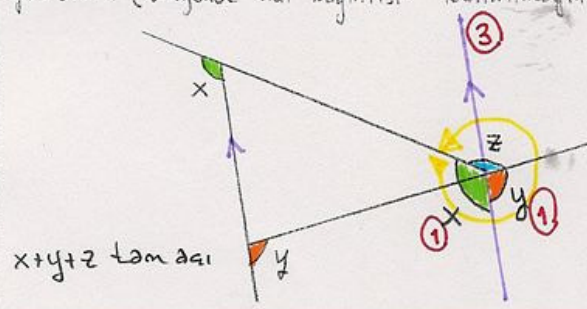 3
x
z
1
x
y
1
x+y+z tam açı
y